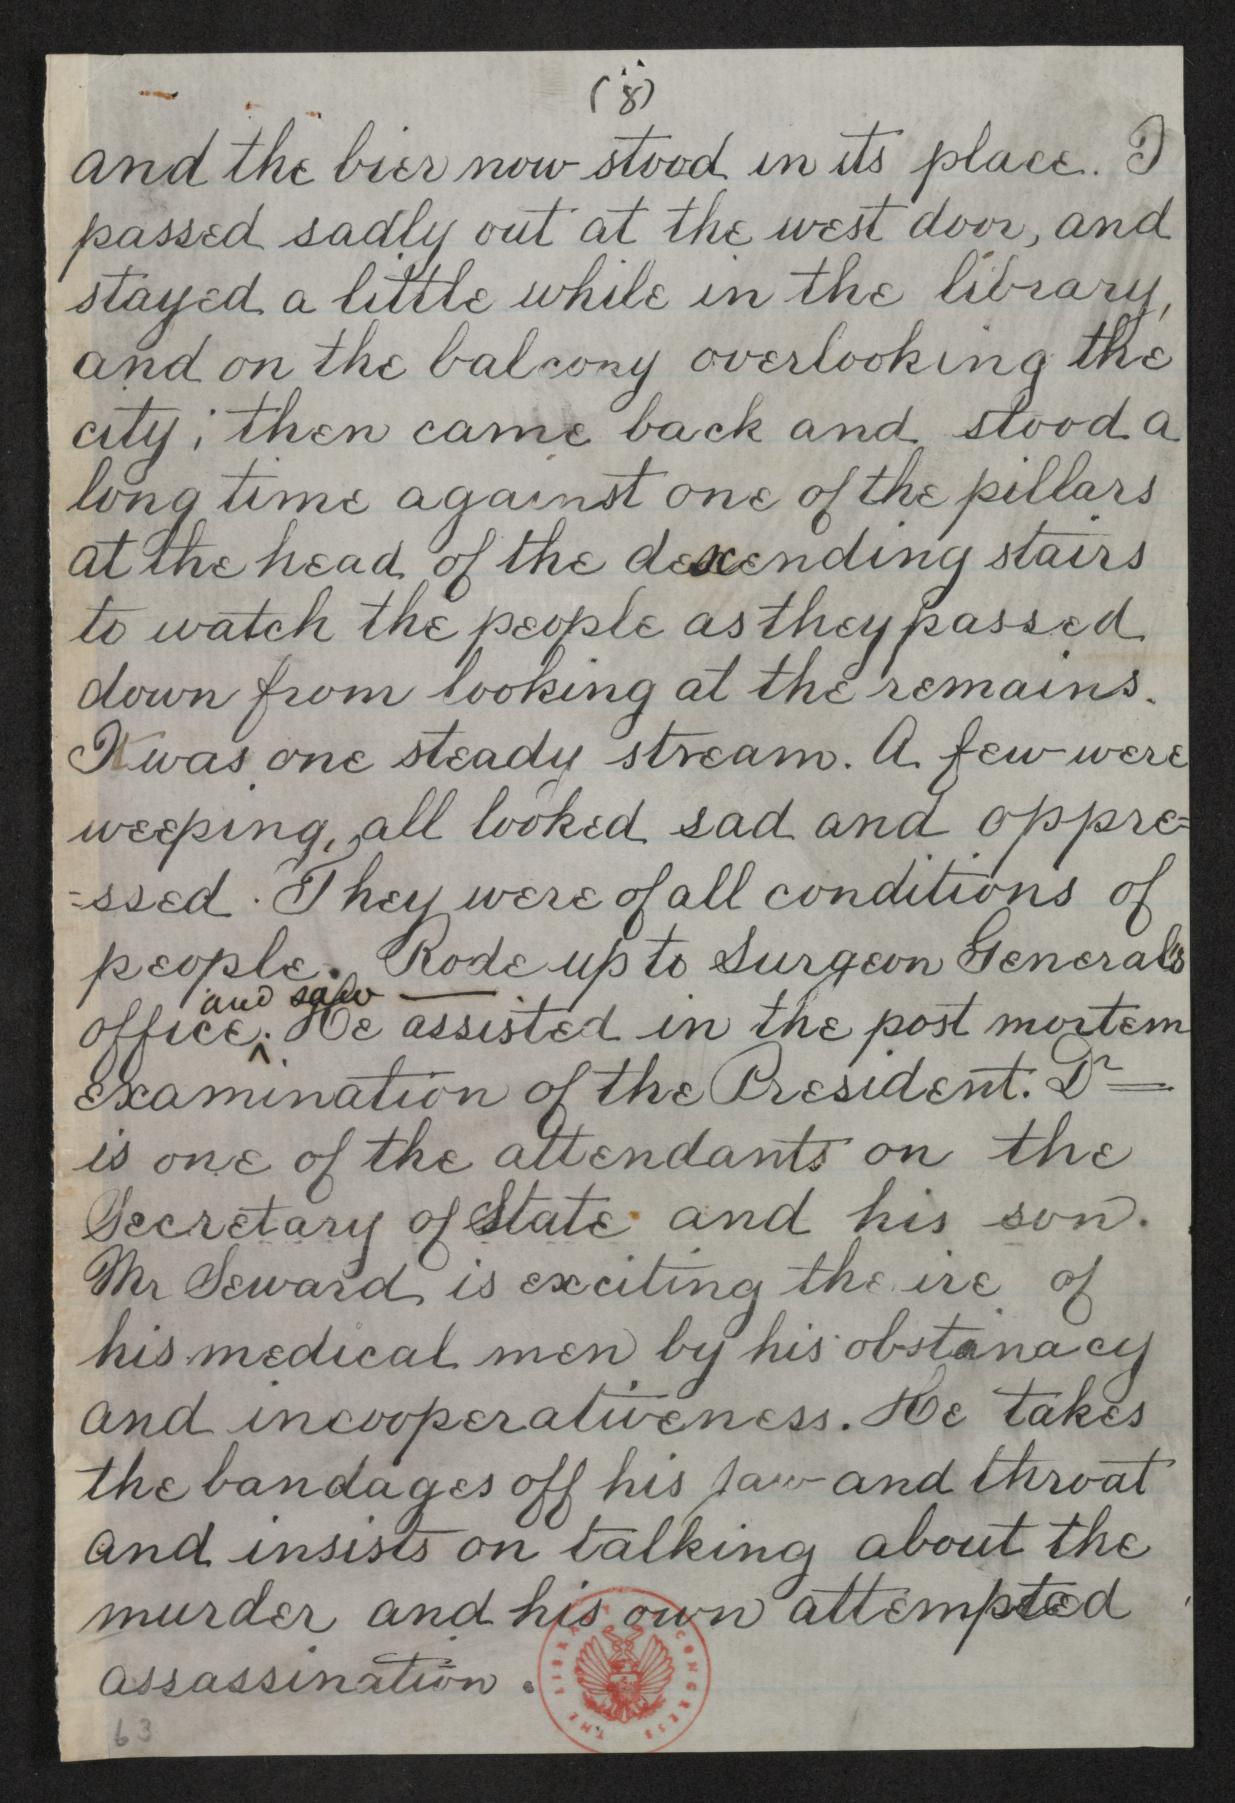 (8)
and the bier now stood in its place. I
passed sadly out at the west door, and
stayed a little while in the library,
and on the balcony overlooking the
city; then came back and stood a
long time against one of the pillars
at the head of the descending stairs
to watch the people as they passed
down from looking at the remains.
It was one steady stream. A few were
weeping, all looked sad and oppre=
=ssed. They were of all conditions of
people. Rode up to Surgeon General's
and saw —
office. ^ He assisted in the post mortem
examination of the President. Dr —
is one of the attendants on the
Secretary of State and his son.
Mr Seward is exciting the ire of
his medical men by his obstinacy
and incooperativeness. He takes
the bandages off his jaw and throat
and insists on talking about the
murder and his own attempted
assassination.
THE LIBRARY OF CONGRESS
63